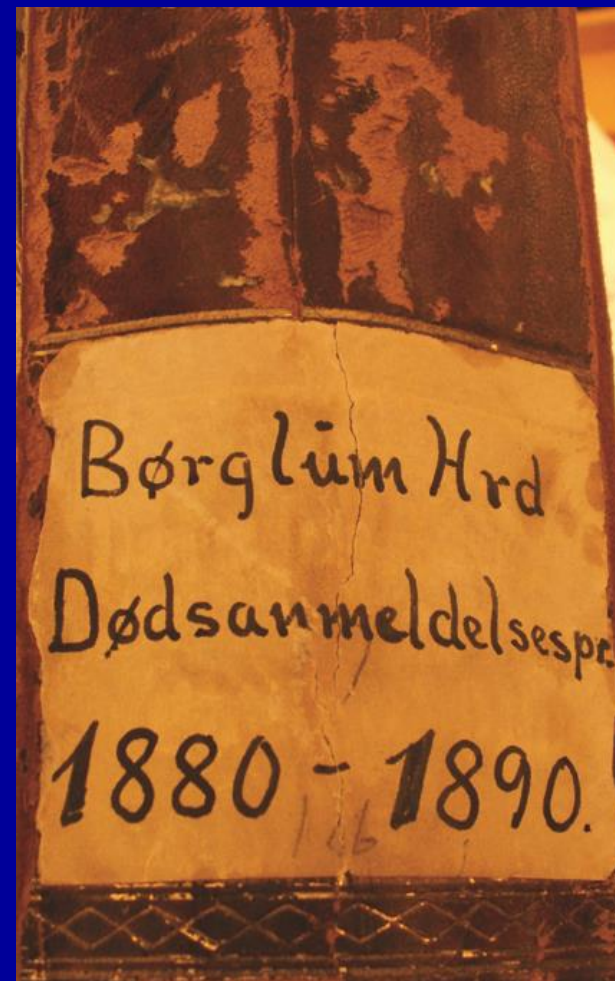 Børglum Hrd
Dødsanmeldelsespr.
1880-1890.